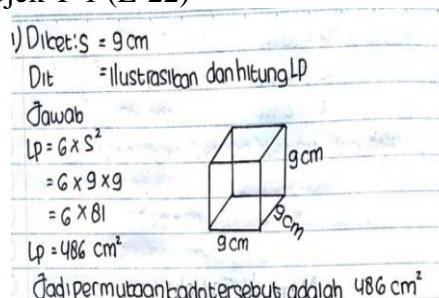 1) Diket: S = 9 cm
Dit = Ilustrasikan dan hitung LP
Jawab
LP = 6 x S²
= 6 x 9 x 9
= 6 x 81
LP = 486 cm²
9 cm
9 cm
9 cm
Jadi permukaan kado tersebut adalah 486 cm²